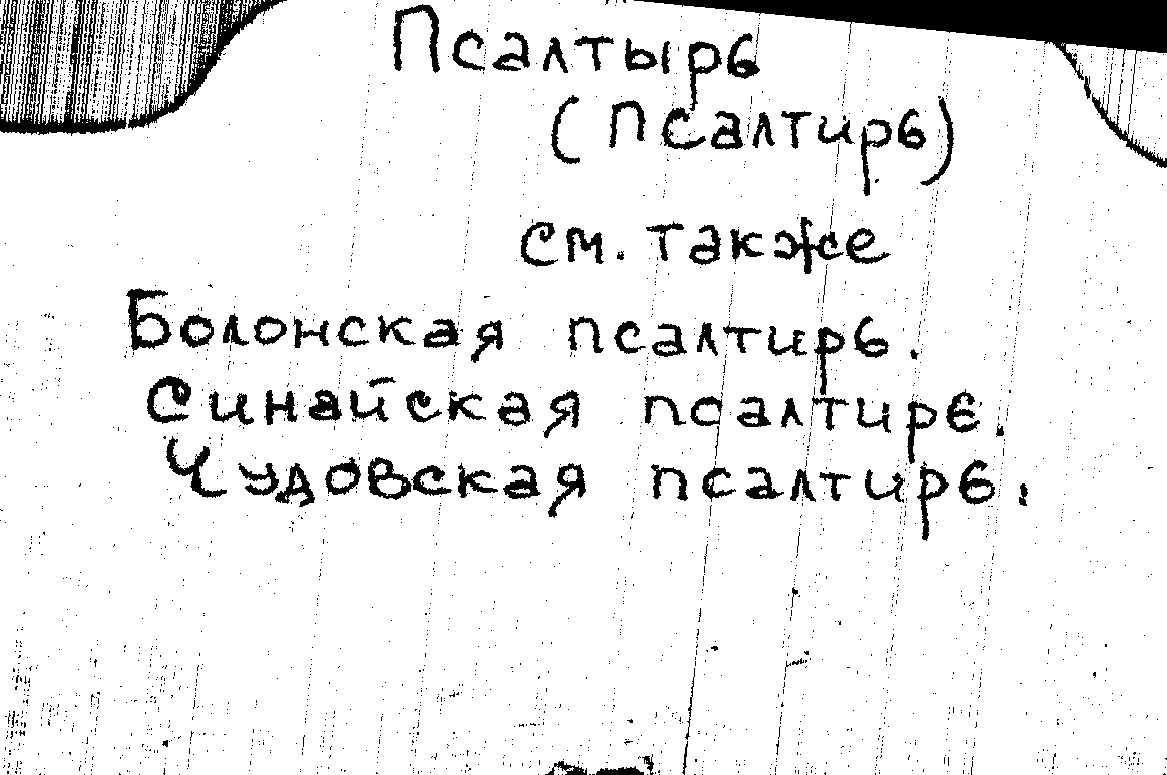 Псалтырь
(Псалтирь)
см. также
Болонская псалтирь.
Синайская псалтирь.
Чудовская псалтирь.